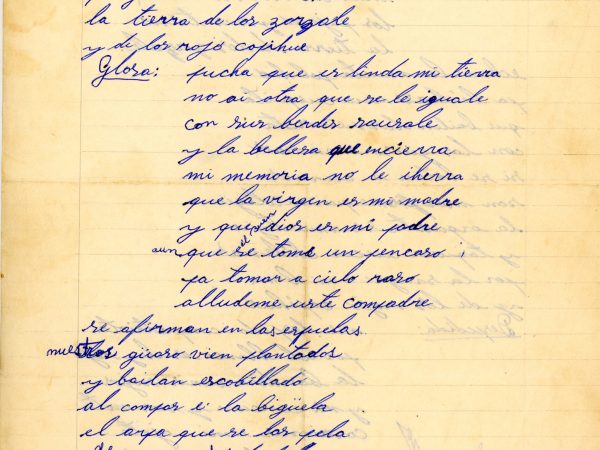 la tierra de los zorzale
y di los rojo copihue
Glosa: pucha que es linda mi tierra
no ai otra que se le iguale
con sus berdes sausale
y la bellesa que encierra
mi memoria no le iherra
que la virgen es mi madre
y que dios es mi padre
aunque se tome un pencaso ¡
pa tomar a cielo raso
alludeme uste compadre
se afirman en las espuelas
nuestros güaso vien plantados
y bailan escobillado
al compas e la bigüela
el arpa que se las pela